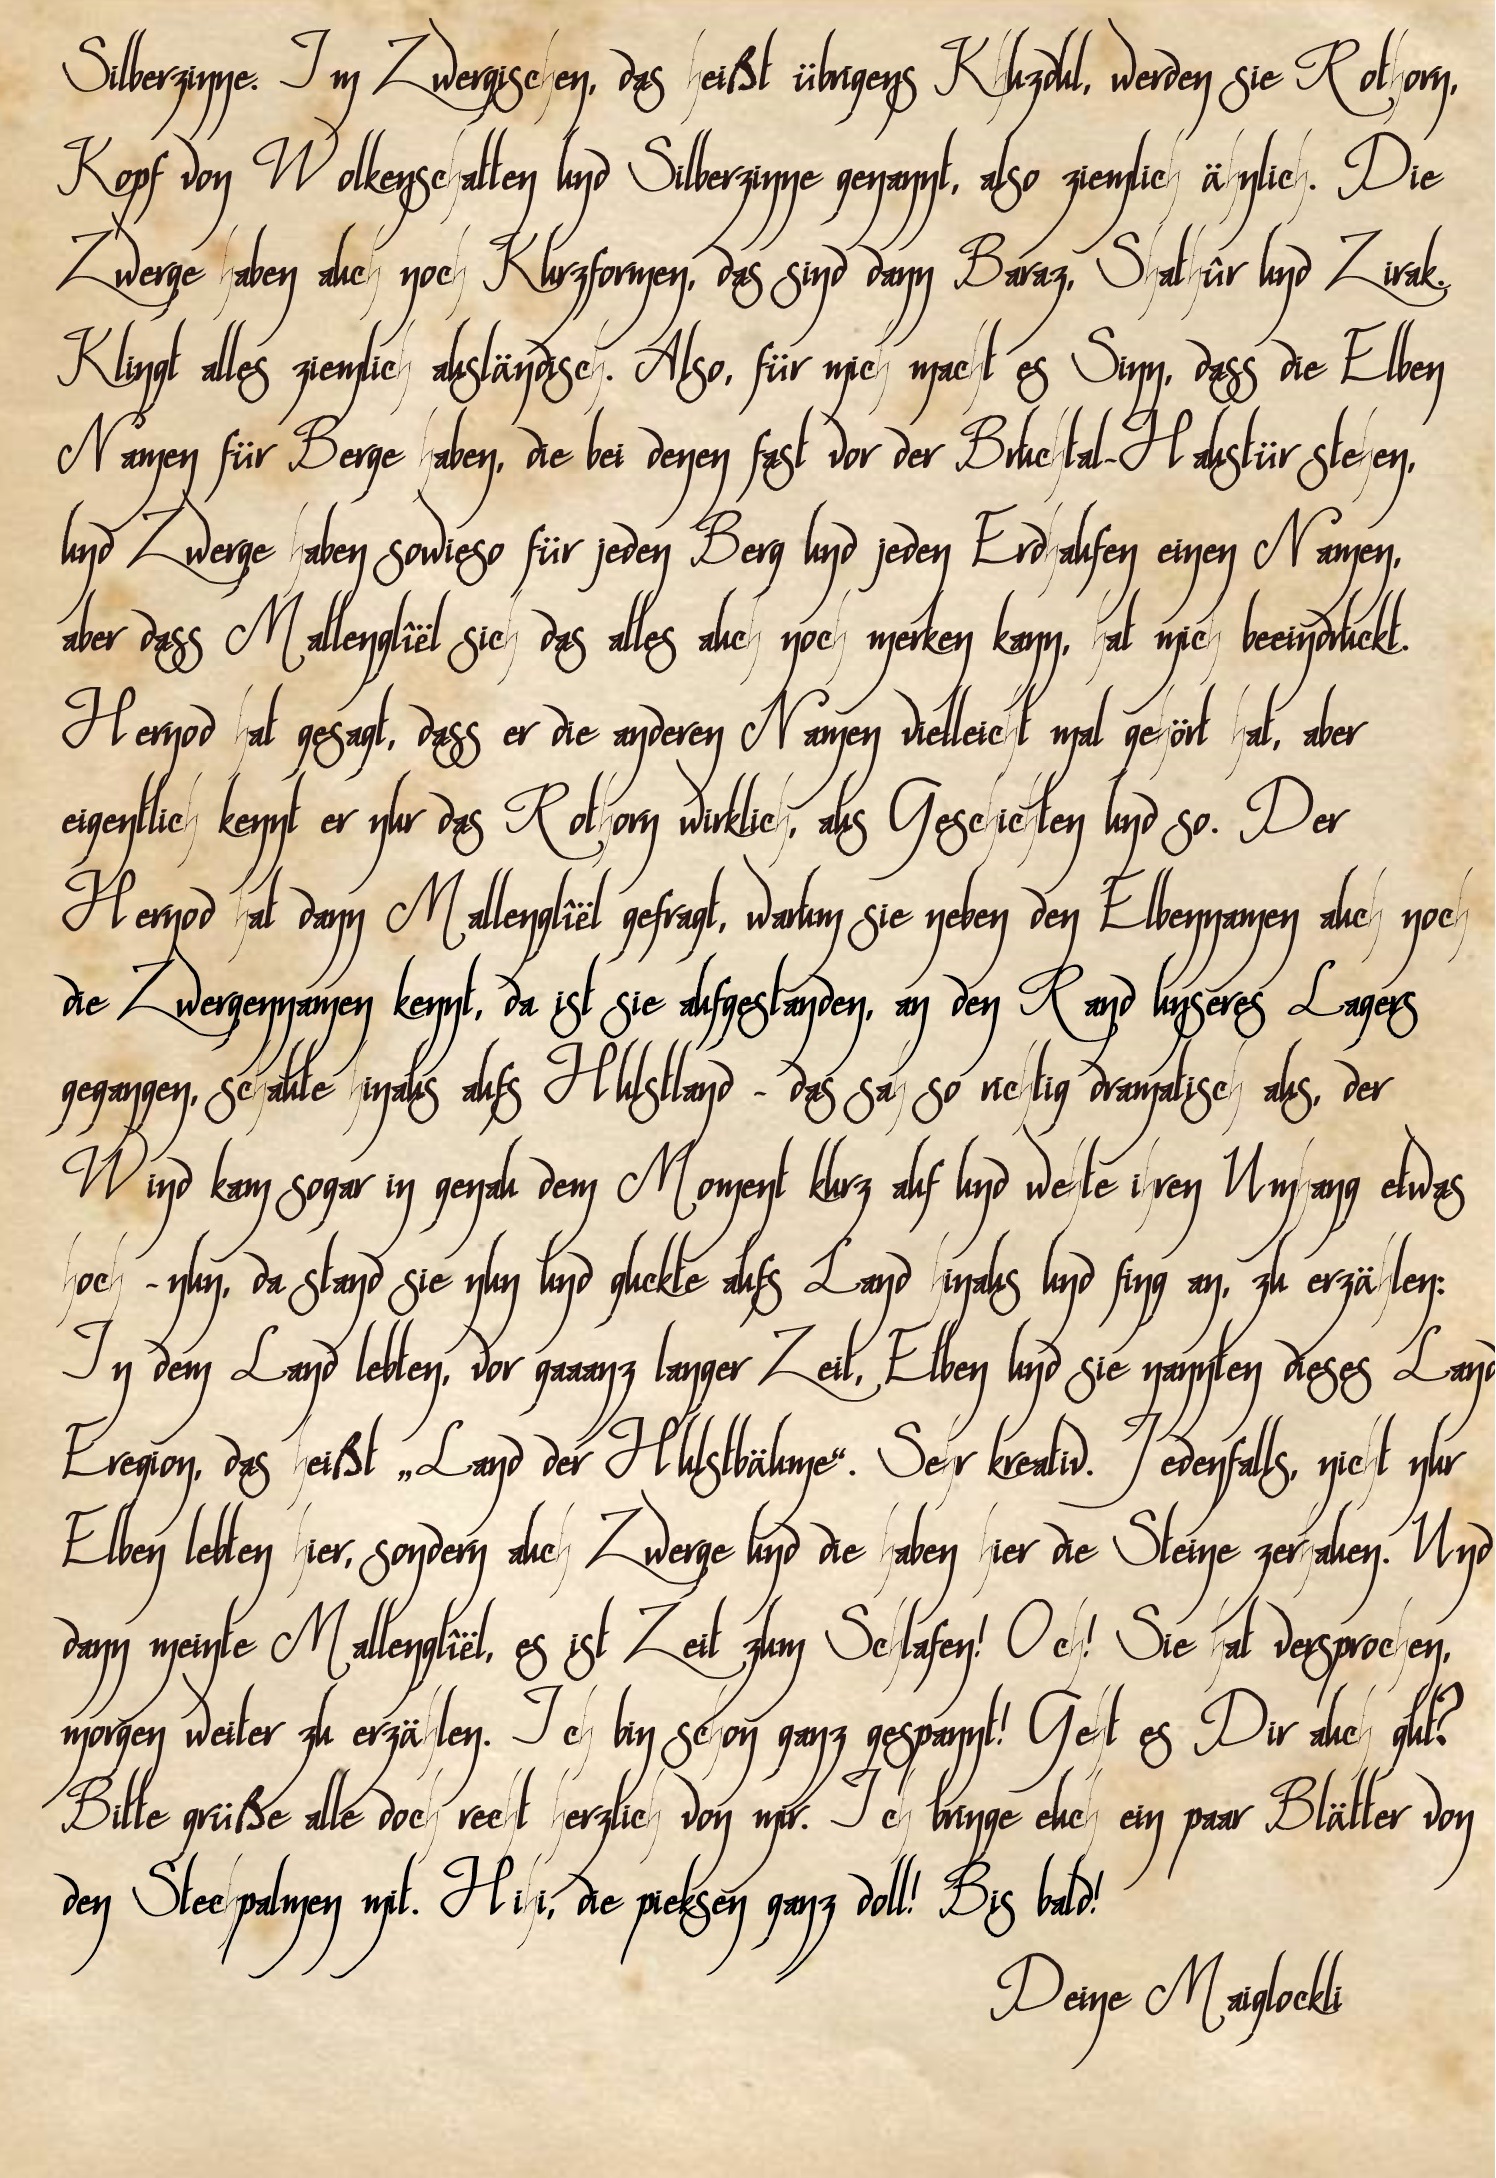 Silberzinne. Im Zwergischen, das heißt übrigens Khuzdul, werden sie Rothorn,
Kopf von Wolkenschatten und Silberzinne genannt, also ziemlich ähnlich. Die
Zwerge haben auch noch Kurzformen, das sind dann Baraz, Shathûr und Zirak.
Klingt alles ziemlich ausländisch. Also, für mich macht es Sinn, dass die Elben
Namen für Berge haben, die bei denen fast vor der Bruchtal-Haustür stehen,
und Zwerge haben sowieso für jeden Berg und jeden Erdhaufen einen Namen,
aber dass Mallenglîël sich das alles auch noch merken kann, hat mich beeindruckt.
Hernod hat gesagt, dass er die anderen Namen vielleicht mal gehört hat, aber
eigentlich kennt er nur das Rothorn wirklich, aus Geschichten und so. Der
Hernod hat dann Mallenglîël gefragt, warum sie neben den Elbennamen auch noch
die Zwergennamen kennt, da ist sie aufgestanden, an den Rand unseres Lagers
gegangen, schaute hinaus aufs Hulstland - das sah so richtig dramatisch aus, der
Wind kam sogar in genau dem Moment kurz auf und wehte ihren Umhang etwas
hoch - nun, da stand sie nun und guckte aufs Land hinaus und fing an, zu erzählen:
In dem Land lebten, vor gaaanz langer Zeit, Elben und sie nannten dieses Land
Eregion, das heißt „Land der Hulstbäume“. Sehr kreativ. Jedenfalls, nicht nur
Elben lebten hier, sondern auch Zwerge und die haben hier die Steine zerhauen. Und
dann meinte Mallenglîël, es ist Zeit zum Schlafen! Och! Sie hat versprochen,
morgen weiter zu erzählen. Ich bin schon ganz gespannt! Geht es Dir auch gut?
Bitte grüße alle doch recht herzlich von mir. Ich bringe euch ein paar Blätter von
den Stechpalmen mit. Hihi, die pieksen ganz doll! Bis bald!
Deine Maiglockli